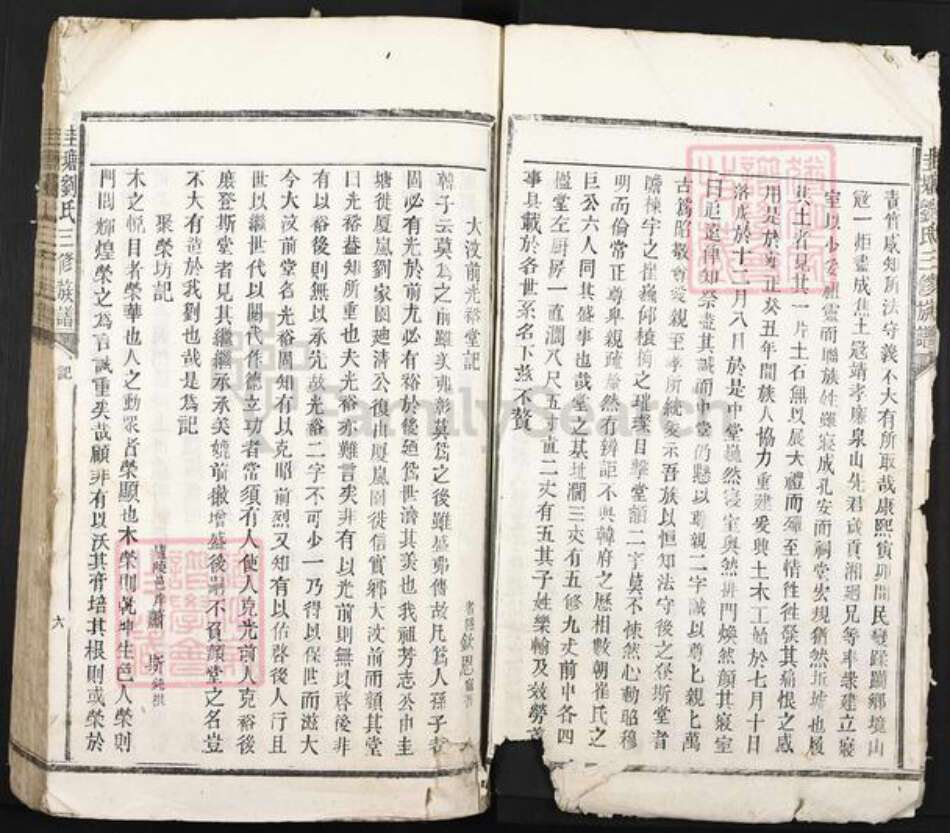 責實咸知所法守義不大有所取哉康熙寅卯間民變蹂躪鄉境山
寇一炬盡成焦土寇靖孝廉泉山先君歲貢湘廻兄等奉衆建立寢
室以少妥祖靈而聯族姓雖寢成孔安而祠堂宏規猶然坵墟也履
其土者見其一片土石無以展大禮而殫至情徃徃發其痛恨之感
用是於雍正癸丑年間族人協力重建爰興土木工始於七月十日
落成於十二月八日於是中堂巍然寢室奥然排門燦然顔其寢室
曰追遠俾知祭盡其誠而中堂仍懸以尊親二字誠以尊上親上萬
古爲昭敬尊愛親至孝所統爰示吾族以恒知法守後之登斯堂者
瞻棟宇之崔巍仰榱桷之璀璨目擊堂額二字莫不悚然心動昭穆
明而倫常正尊卑親疏燦然有辨詎不與韓府之歷相數朝崔氏之
巨公六人同其盛事也哉堂之基址濶三丈有五修九丈前中各四
楹堂左厨屏一直濶八尺五寸直二丈有五其子姓樂輸及效勞
事具載於各世系名下茲不贅
大汶前光裕堂記
韓子云莫為之前雖美弗彰莫爲之後雖盛弗傳故凡爲人孫子者
固必有光於前尤必有裕於後廼爲世濟其美也我祖芳志公由圭
塘徙厦嵐劉家園廼清公復由厦嵐園徙信實鄉大汶前而顔其堂
曰光裕葢知所重也夫光裕亦難言矣非有以光前則無以啓後非
有以裕後則無以承先故光裕二字不可少一乃得以保世而滋大
今大汶前堂名光裕固知有以克昭前烈又知有以佑啓後人行且
世以繼世代以開代作德立功者常須有人使人克光前人克裕後
庶登斯堂者見其繼繼承承美媲前徽增盛後嗣不負顔堂之名豈
不大有造於我劉也哉是爲記
聚榮坊記
廬陵邑庠蕭 斯
木之悅目者榮華也人之動衆者榮顯也木榮則乾坤生色人榮則
門閭輝煌榮之為言誠重矣哉顧非有以沃其膏培其根則或榮於
圭塘劉氏三修族譜
記
六
圭塘劉氏三修族譜
FamilySearch